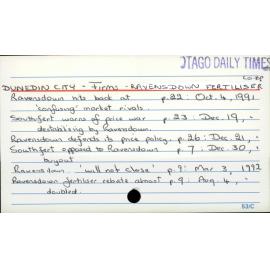 OTAGO DAILY TIMES
CO-OP
DUNEDIN CITY - Firms - RAVENSDOWN FERTILISER
Ravensdown hits back at p.22: Oct. 4, 1991
'confusing' market rivals.
Southfert warns of price war p. 23: Dec. 19, "
destabilising by Ravensdown.
Ravensdown defends its price policy. p. 26: Dec. 21, "
Southfert opposed to Ravensdown p. 7: Dec. 30, "
buyout
Ravensdown 'will not close' p. 9: Mar 3, 1992
Ravensdown fertiliser rebate almost p. 9: Aug. 4, "
doubled.
53/C